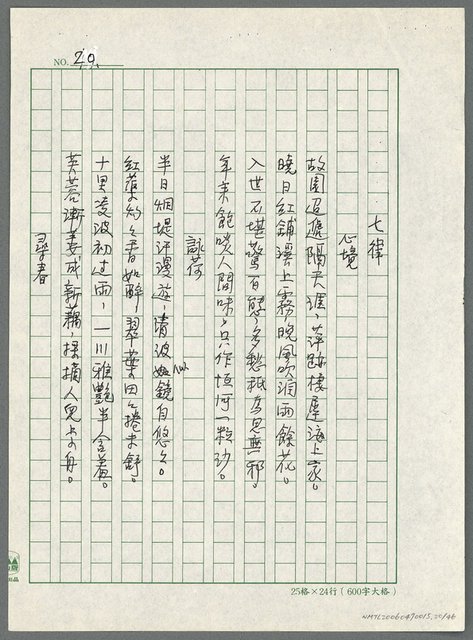 NO. 29.
七律
心境
故園迢遞隔天涯，萍跡棲遲海上家。
曉日紅鋪溪上霧，晚風吹潤雨餘花。
入世不堪驚百態，多愁祗為思無邪。
年來飽啖人間味，只作恒河一粒沙。
詠荷
半日烟堤汗漫遊，清波如鏡自悠悠。
紅蕖灼灼香如醉，翠葉田田捲未舒。
十里凌波初過雨，一川雅艷半含羞。
芙蓉漸蔞成新藕，採摘人兒上舟。
尋春
25格×24行（600字大格）
NMTL20060470015, 29/46